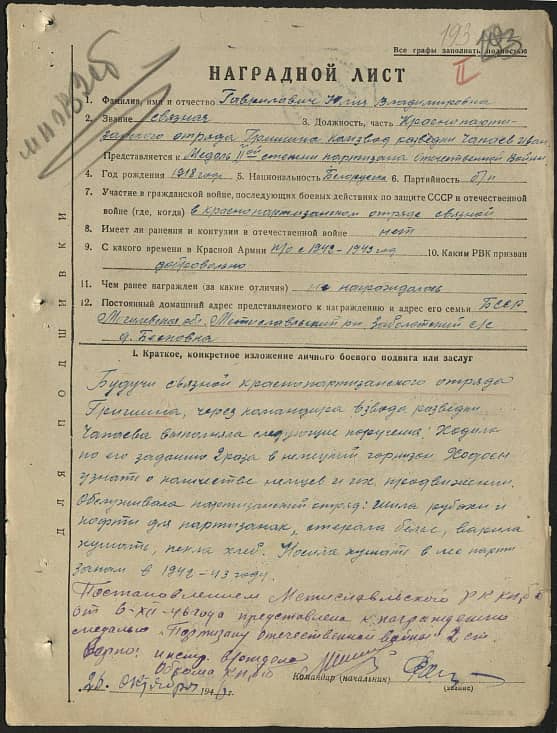 193
293
Все графы заполнять полностью
II
НАГРАДНОЙ ЛИСТ
1. Фамилия, имя и отчество Гаврилович Юлия Владимировна
2. Звание связная 3. Должность, часть Краснопарти-
занского отряда Гришина комвзвод разведки Чапаев Иван
Представляется к Медаль IIой степени партизана Отечественной Войны
4. Год рождения 1918 год 5. Национальность Белоруска 6. Партийность б/п
7. Участие в гражданской войне, последующих боевых действиях по защите СССР и отечественной
войне (где, когда) в краснопартизанском отряде связной
8. Имеет ли ранения и контузии в отечественной войне нет
9. С какого времени в Красной Армии п/о с 1942-1943 год 10. Каким РВК призван
добровольно
11. Чем ранее награжден (за какие отличия) не награждалась
12. Постоянный домашний адрес представляемого к награждению и адрес его семьи БССР
Могилевская об. Мстиславльский р-н Заболотский с/с
д.
I. Краткое, конкретное изложение личного боевого подвига или заслуг
Будучи связной краснопартизанского отряда
Гришина, через командира взвода разведки
Чапаева выполняла следующие поручения: Ходила
по его заданию 2 раза в немецкий горнизон
узнать о количестве немцев и их продвижении.
Обслуживала партизанский отряд: шила рубахи и
кофты для партизанак, стерала белье, варила
кушать, пекла хлеб. Носила кушать в лес парти
занам в 1942-43 году.
Постановлением Мстиславльского РК КП/б/Б
от 6-XII-46 года представлена к награждению
медалью „Партизану отечественной войны" 2 ст.
Верно: инстр.
Обкома КП/б/Б
Командир (начальник)
(звание)
26 октября 194 г.
ДЛЯ ПОДШИВКИ